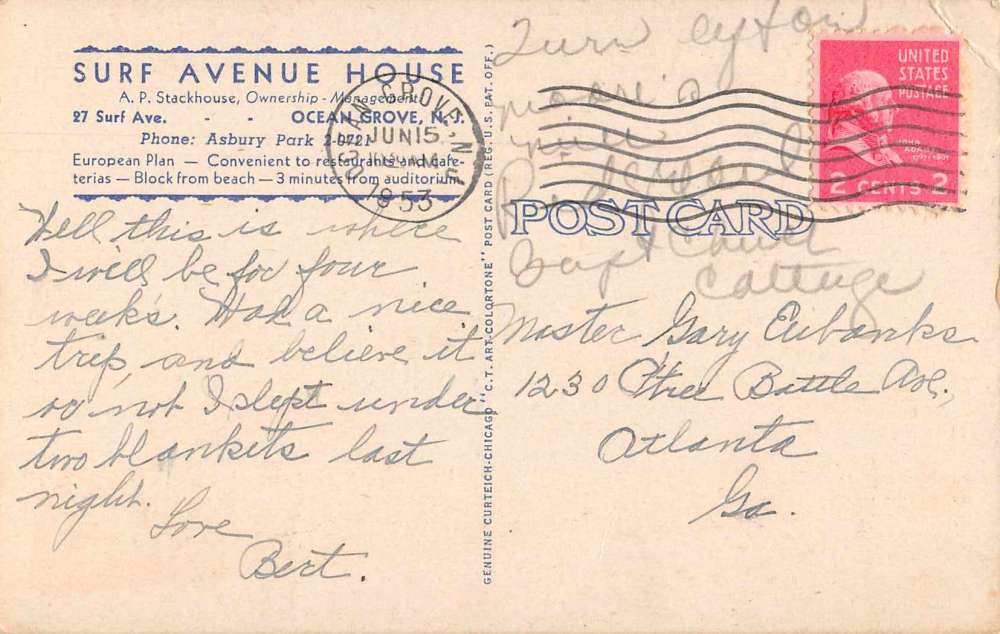 SURF AVENUE HOUSE
A. P. Stackhouse, Ownership - Management
27 Surf Ave. - - OCEAN GROVE, N. J.
Phone: Asbury Park 2-0721
European Plan — Convenient to restaurants and cafe-
terias — Block from beach — 3 minutes from auditorium
OCEAN GROVE, N.J.
JUN 15
AM
1953
Well this is where
I will be for four
weeks. Had a nice
trip, and believe it
or not I slept under
two blankets last
night.
Love
Bert.
GENUINE CURTEICH-CHICAGO "C.T. ART-COLORTONE" POST CARD (REG. U.S. PAT. OFF.)
Turn
Cottage
UNITED
STATES
POSTAGE
JOHN
ADAMS
1797-1801
2 CENTS 2
POST CARD
Master Gary Eubanks
1230 P'tree Battle Ave.,
Atlanta
Ga.